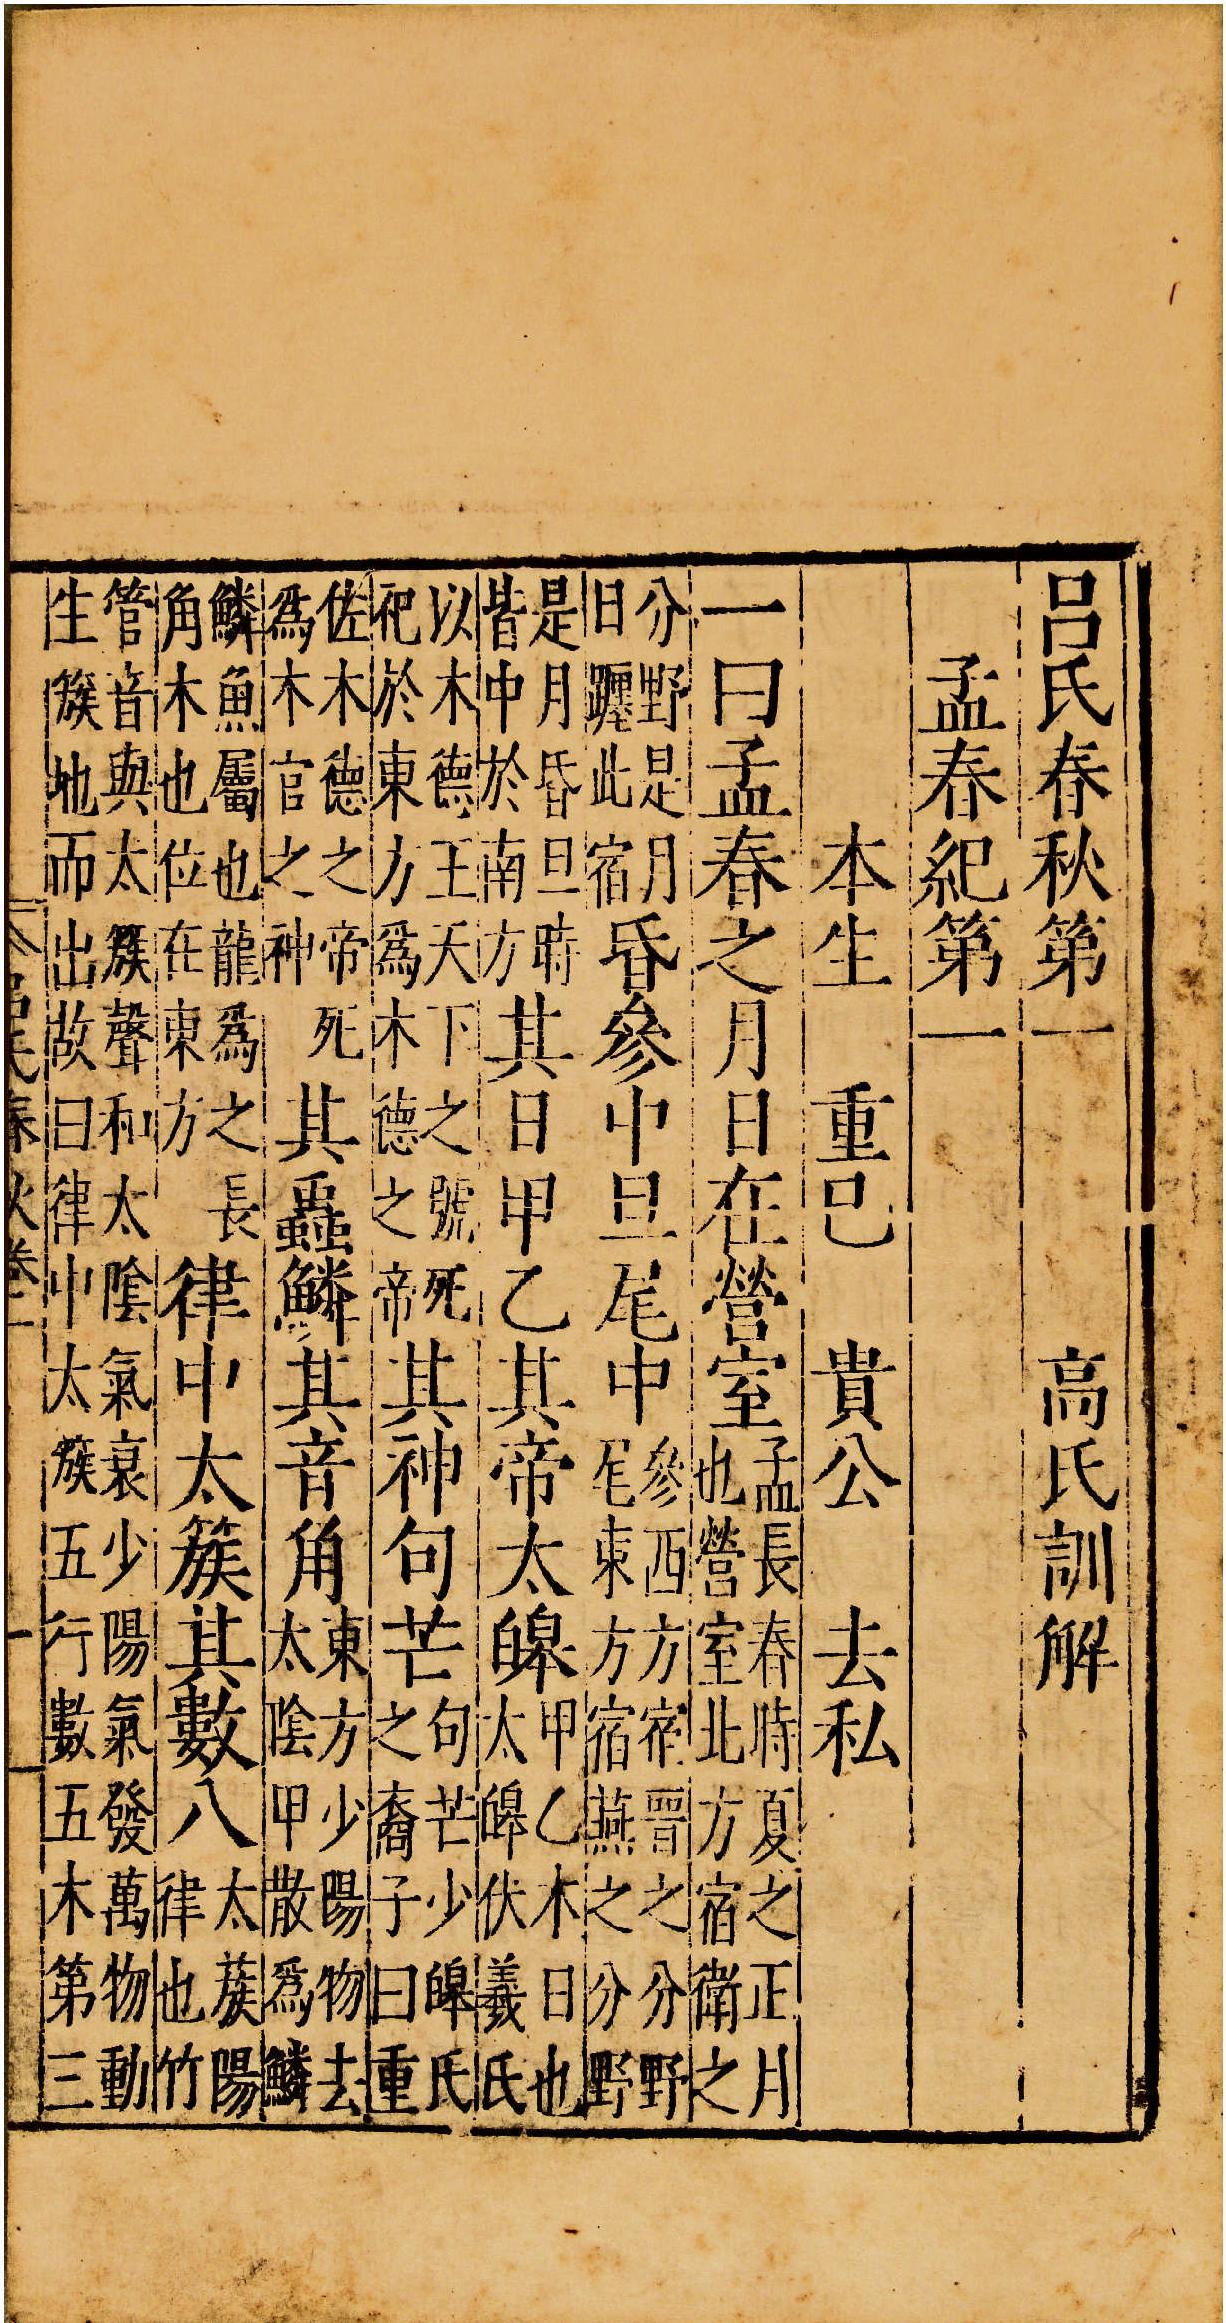 呂氏春秋第一 高氏訓解
孟春紀第一
本生 重巳 貴公 去私
一曰孟春之月日在營室孟長春時夏之正月也營室北方宿衛之
分野是月日躔此宿昏參中旦尾中參西方宿晉之分野尾東方宿燕之分野
是月昏旦時皆中於南方其日甲乙其帝太皞甲乙木日也太皞伏羲氏
以木德王天下之號死祀於東方為木德之帝其神句芒句芒少皞氏之裔子曰重
佐木德之帝死為木官之神其蟲鱗其音角東方少陽物去太陰甲散為鱗
鱗魚屬也龍為之長角木也位在東方律中太簇其數八太蔟陽律也竹
管音與太簇聲和太陰氣衰少陽氣發萬物動生簇地而出故曰律中太簇五行數五木第三
呂氏春秋卷一 一